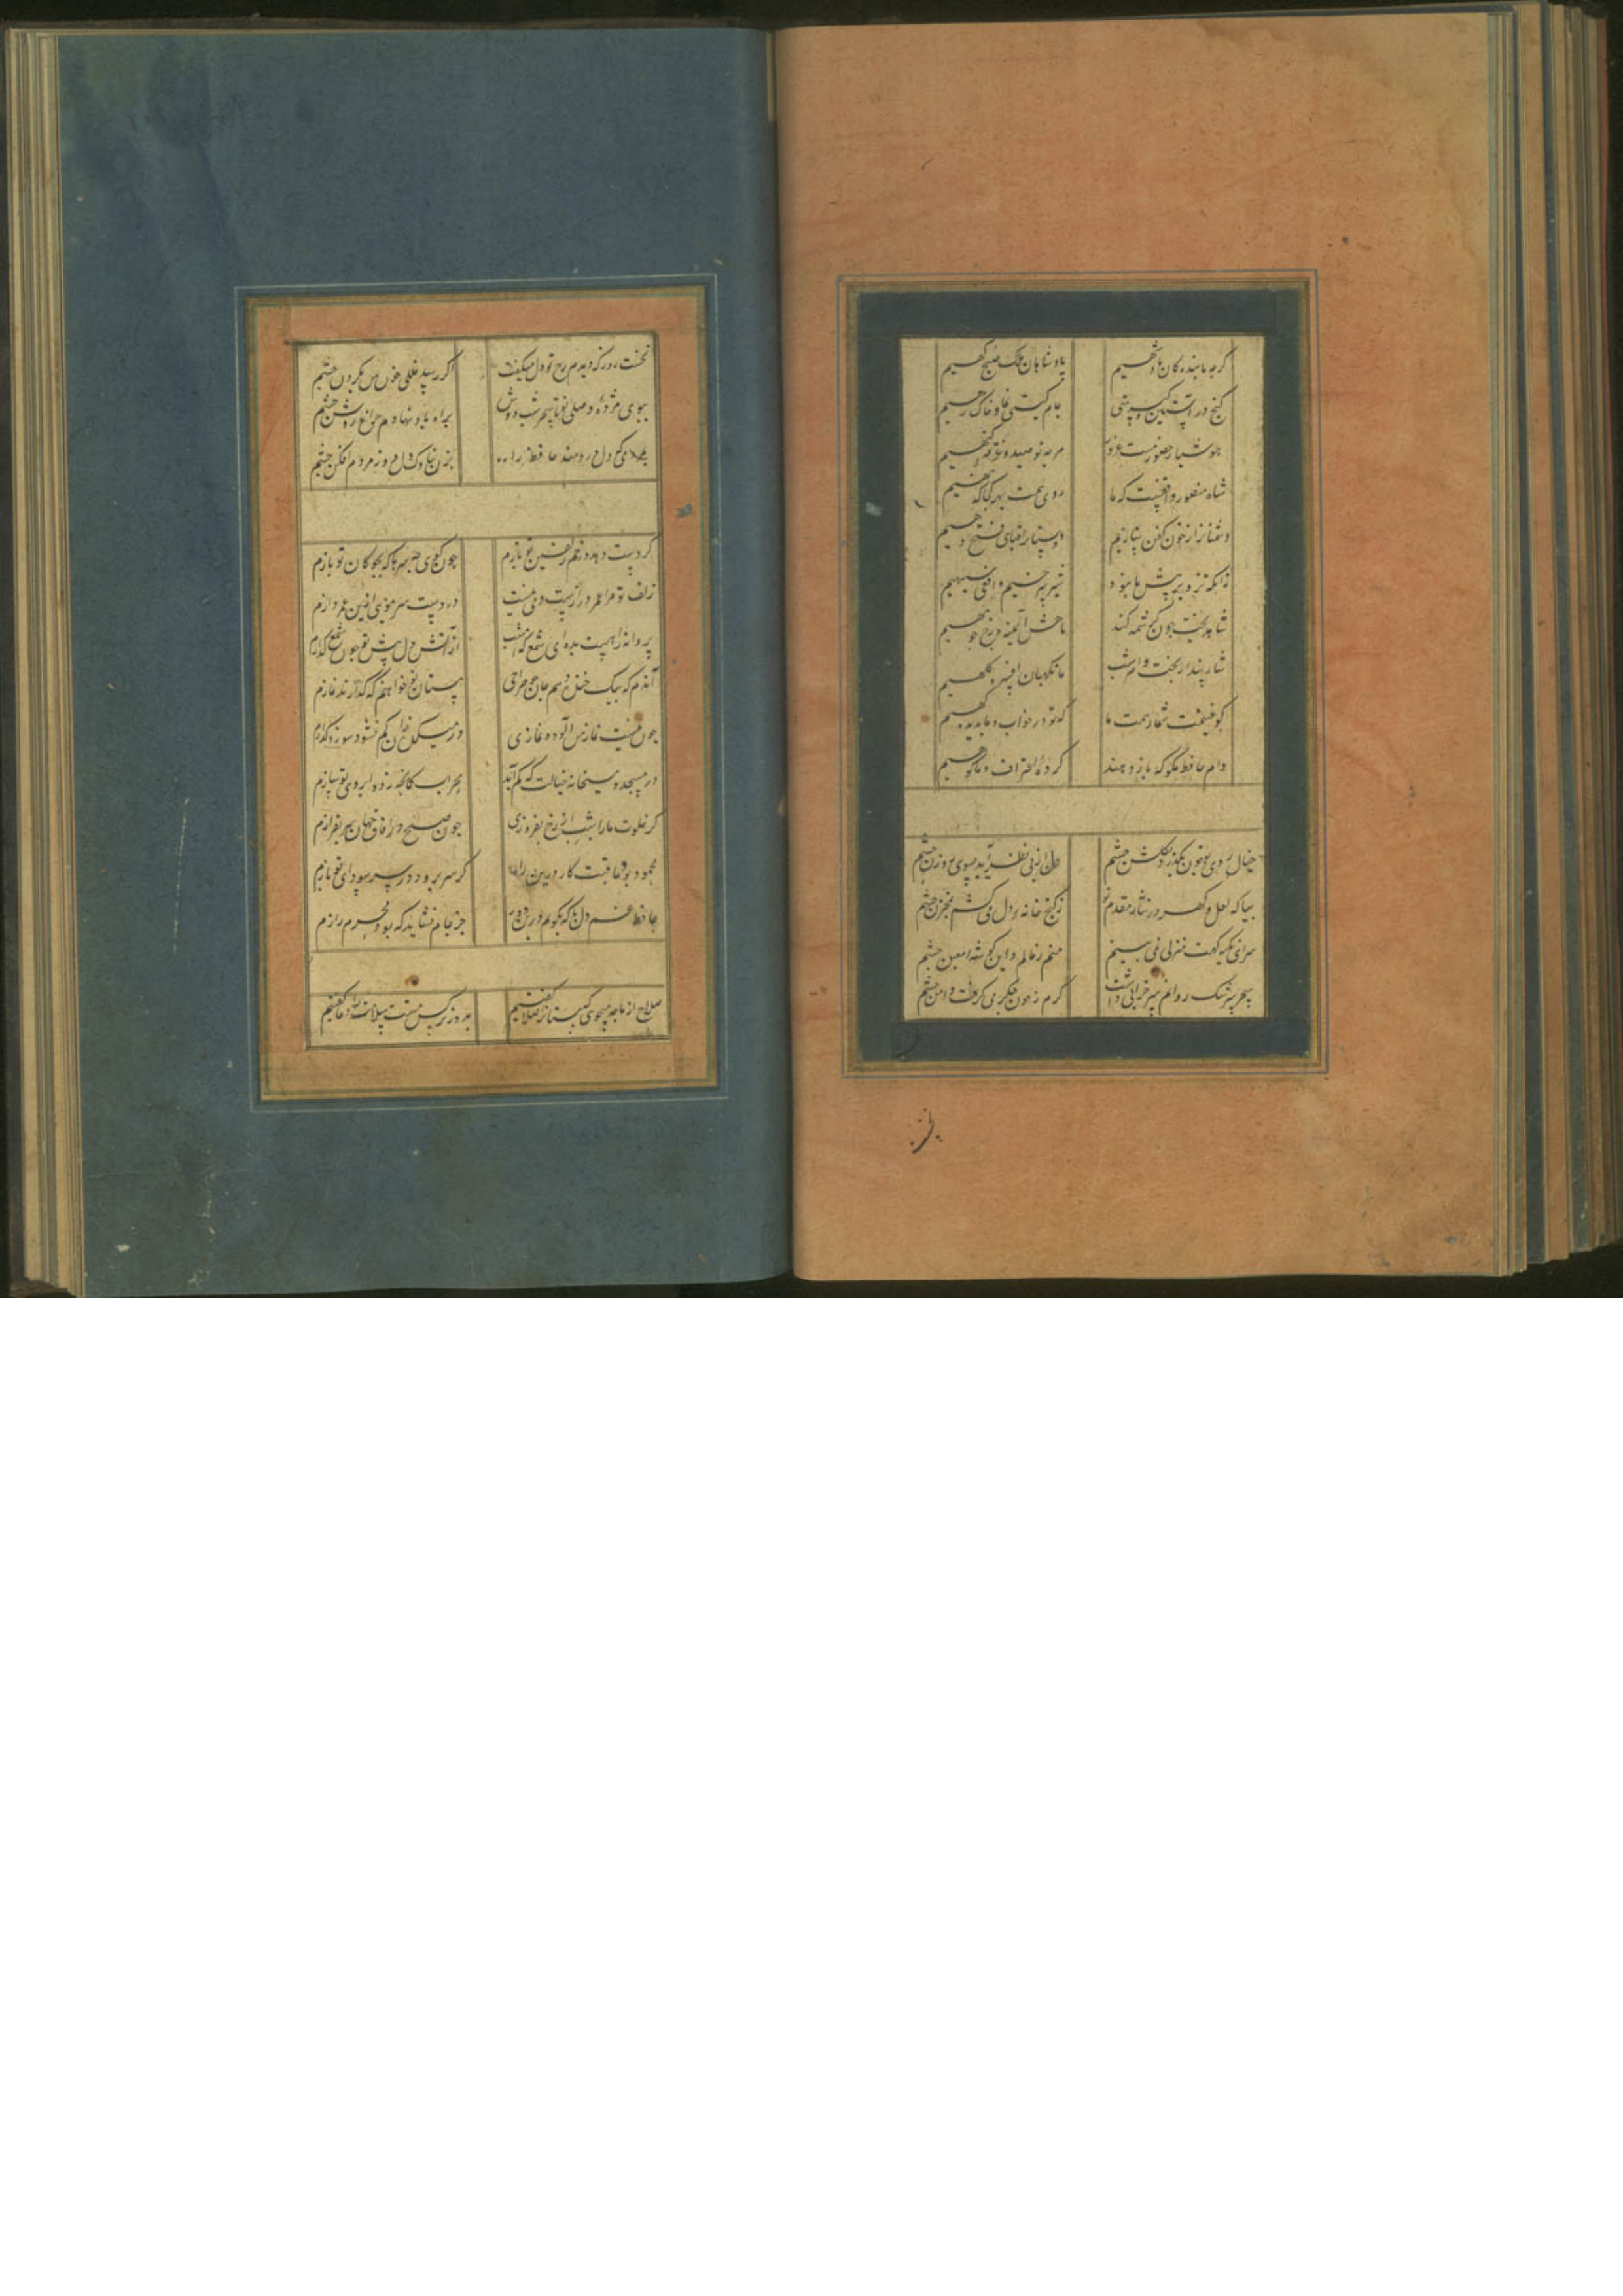 گرچه ما بندگان پادشهیم پادشاهان ملک صبحگهیم
گنج در آستین و کیسه تهی جام گیتی نما و خاک رهیم
هوشیار حضور و مست غرور بحر توحید و غرقه گنهیم
شاه منصور واقفست که ما روی همت بهر کجا که نهیم
دشمنانرا ز خون کفن سازیم دوستانرا قبای فتح دهیم
زانکه تزویر پیش ما نبود شیر سرخیم و افعی سیهیم
شاهد بخت چون کرشمه کند ماهش آئینه رخ چو مهیم
شاه بیدار بخت را هر شب ما نگهبان افسر و کلهیم
گو غنیمت شمار همت ما که تو در خواب و ما بدیده گهیم
وام حافظ بگو که باز دهند کرده اعتراف و ما گوهیم
خیال روی تو چون بگذرد بگلشن چشم دل از پی نظر آید بسوی روزن چشم
بیا که لعل و گهر در نثار مقدم تو ز گنج خانه دل می کشم بمخزن چشم
سزای تکیه گهت منزلی نمی بینم منم ز عالم و این گوشه معین چشم
سحر سرشک روانم سر خرابی داشت گرم نه خون جگر می گرفت دامن چشم
نخست روز که دیدم رخ تو دل میگفت اگر رسد خللی خون من بگردن چشم
ببوی مژده وصل تو تا سحر شب دوش براه باد نهادم چراغ روشن چشم
بمردمی که دل دردمند حافظ را بزن بناوک دل دوز مردم افکن چشم
گر دست دهد در خم زلفین تو بازم چون گوی چه سرها که بچوگان تو بازم
زلف تو مرا عمر درازست ولی نیست در دست سر موئی ازین عمر درازم
پروانه راحت بده ای شمع که امشب از آتش دل پیش تو چون شمع گدازم
آندم که بیک خنده دهم جان چو صراحی مستان تو خواهم که گذارند نمازم
چون نیست نماز من آلوده نمازی در میکده زان کم نشود سوز و گدازم
در مسجد و میخانه خیالت اگر آید محراب کمانچه ز دو ابروی تو سازم
گر خلوت ما را شبی از رخ بفروزی چون صبح در آفاق جهان سر بفرازم
محمود بود عاقبت کار درین راه گر سر برود در سر سودای تو بازم
حافظ غم دل با که بگویم درین دور جز جام نشاید که بود محرم رازم
صلاح از ما چه میجوئی که مستانرا صلا گفتیم بدور نرگس مستت سلامت را دعا گفتیم